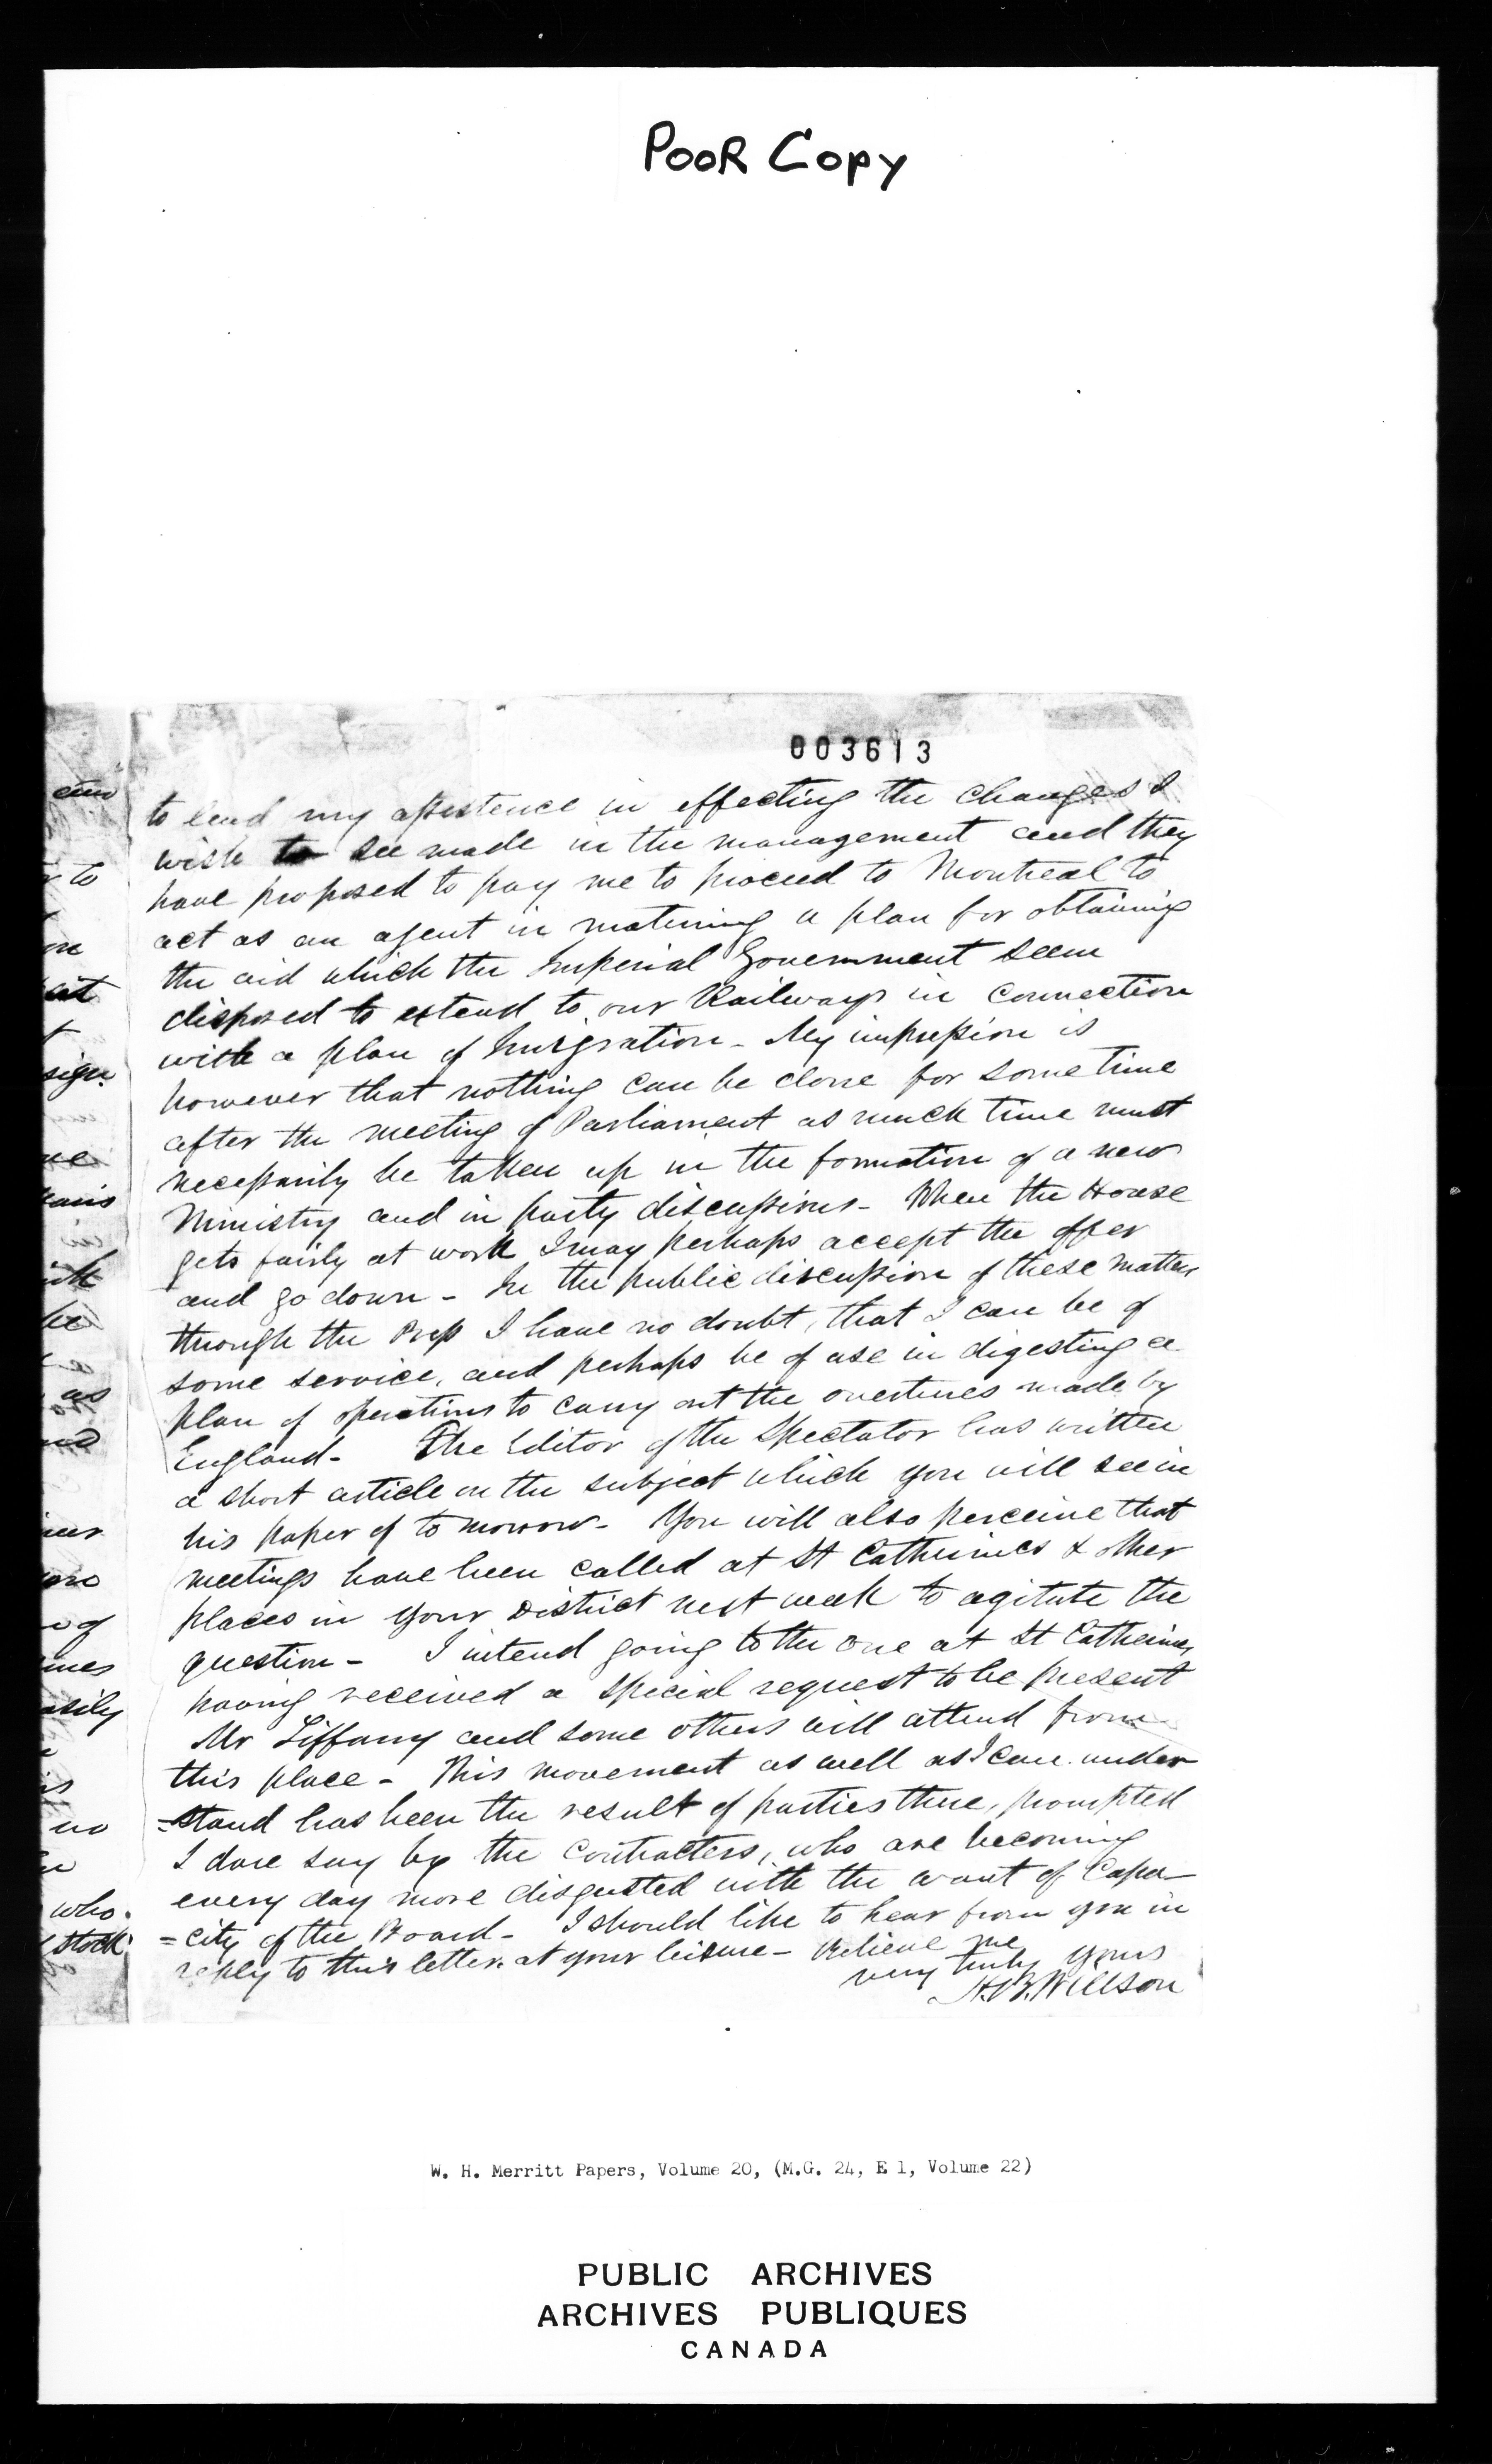 POOR COPY
003613
to lend my assistence in effecting the changes I
wish to see made in the management and they
have proposed to pay me to proceed to Montreal to
act as an agent in maturing a plan for obtaining
the aid which the Imperial Government seem
disposed to extend to our Railways in connection
with a plan of Emigration - My impression is
however that nothing can be done for some time
after the meeting of Parliament as much time must
necessarily be taken up in the formation of a new
Ministry and in party discussions - When the House
gets fairly at work I may perhaps accept the offer
and go down - In the public discussion of these matters
through the Press I have no doubt, that I can be of
some service, and perhaps be of use in digesting a
plan of operations to carry out the overtures made by
England - The Editor of the Spectator has written
a short article on the subject which you will see in
his paper of to morrow - You will also perceive that
meetings have been called at St Catherines & other
places in your District next week to agitate the
question - I intend going to the one at St Catherines
having received a special request to be present
Mr Tiffany and some others will attend from
this place - This movement as well as I can under
=stand has been the result of parties there, prompted
I dare say by the Contractors, who are becoming
every day more disgusted with the want of Capa-
=city of the Board - I should like to hear from you in
reply to this letter at your leisure - Believe me
very truly yours
H.B. Willson
to
on
sign
ne
as
of
asily
no
who
stock
W. H. Merritt Papers, Volume 20, (M.G. 24, E 1, Volume 22)
PUBLIC ARCHIVES
ARCHIVES PUBLIQUES
CANADA